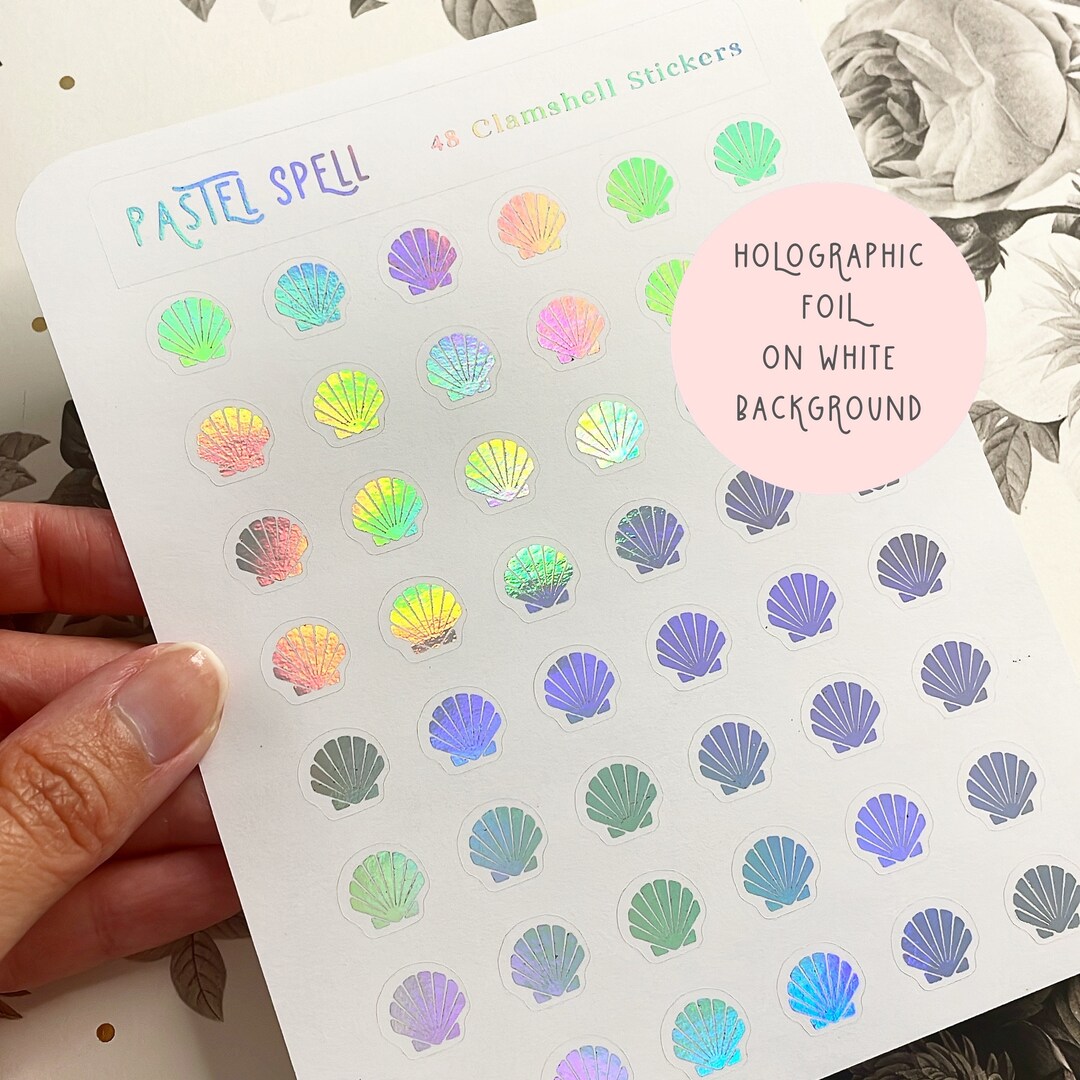 PASTEL SPELL
48 Clamshell Stickers
HOLOGRAPHIC
FOIL
ON WHITE
BACKGROUND